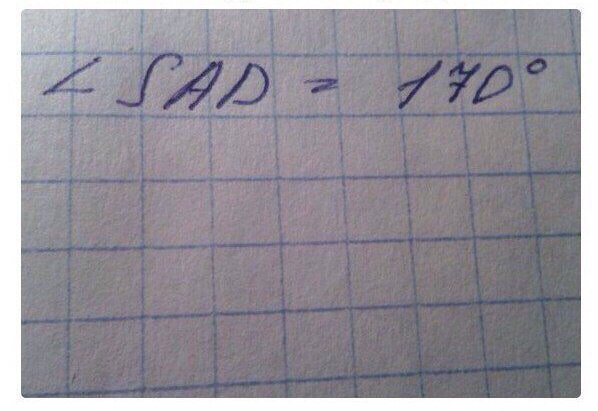 ∠ SAD = 170°